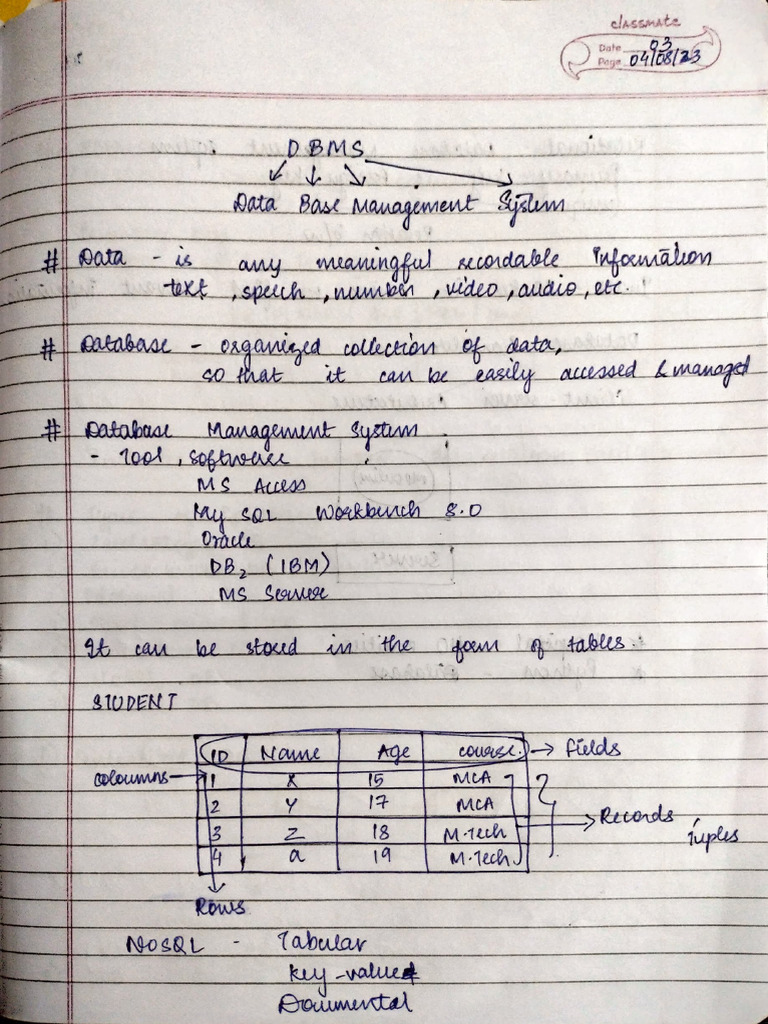 classmate
Date 03
Page 04/08/23
DBMS
Data Base Management System
# Data - is any meaningful recordable information
text, speech, number, video, audio, etc.
# Database - organized collection of data,
so that it can be easily accessed & managed
# Database Management System
- Tool, software
MS Access
My SQL Workbench 8.0
Oracle
DB2 (IBM)
MS Server
It can be stored in the form of tables.
STUDENT
ID Name Age course. → fields
coloumns 1 X 15 MCA
2 Y 17 MCA
3 Z 18 M.Tech → Records Tuples
4 a 19 M.Tech
Rows
NOSQL - Tabular
key-value
Documental